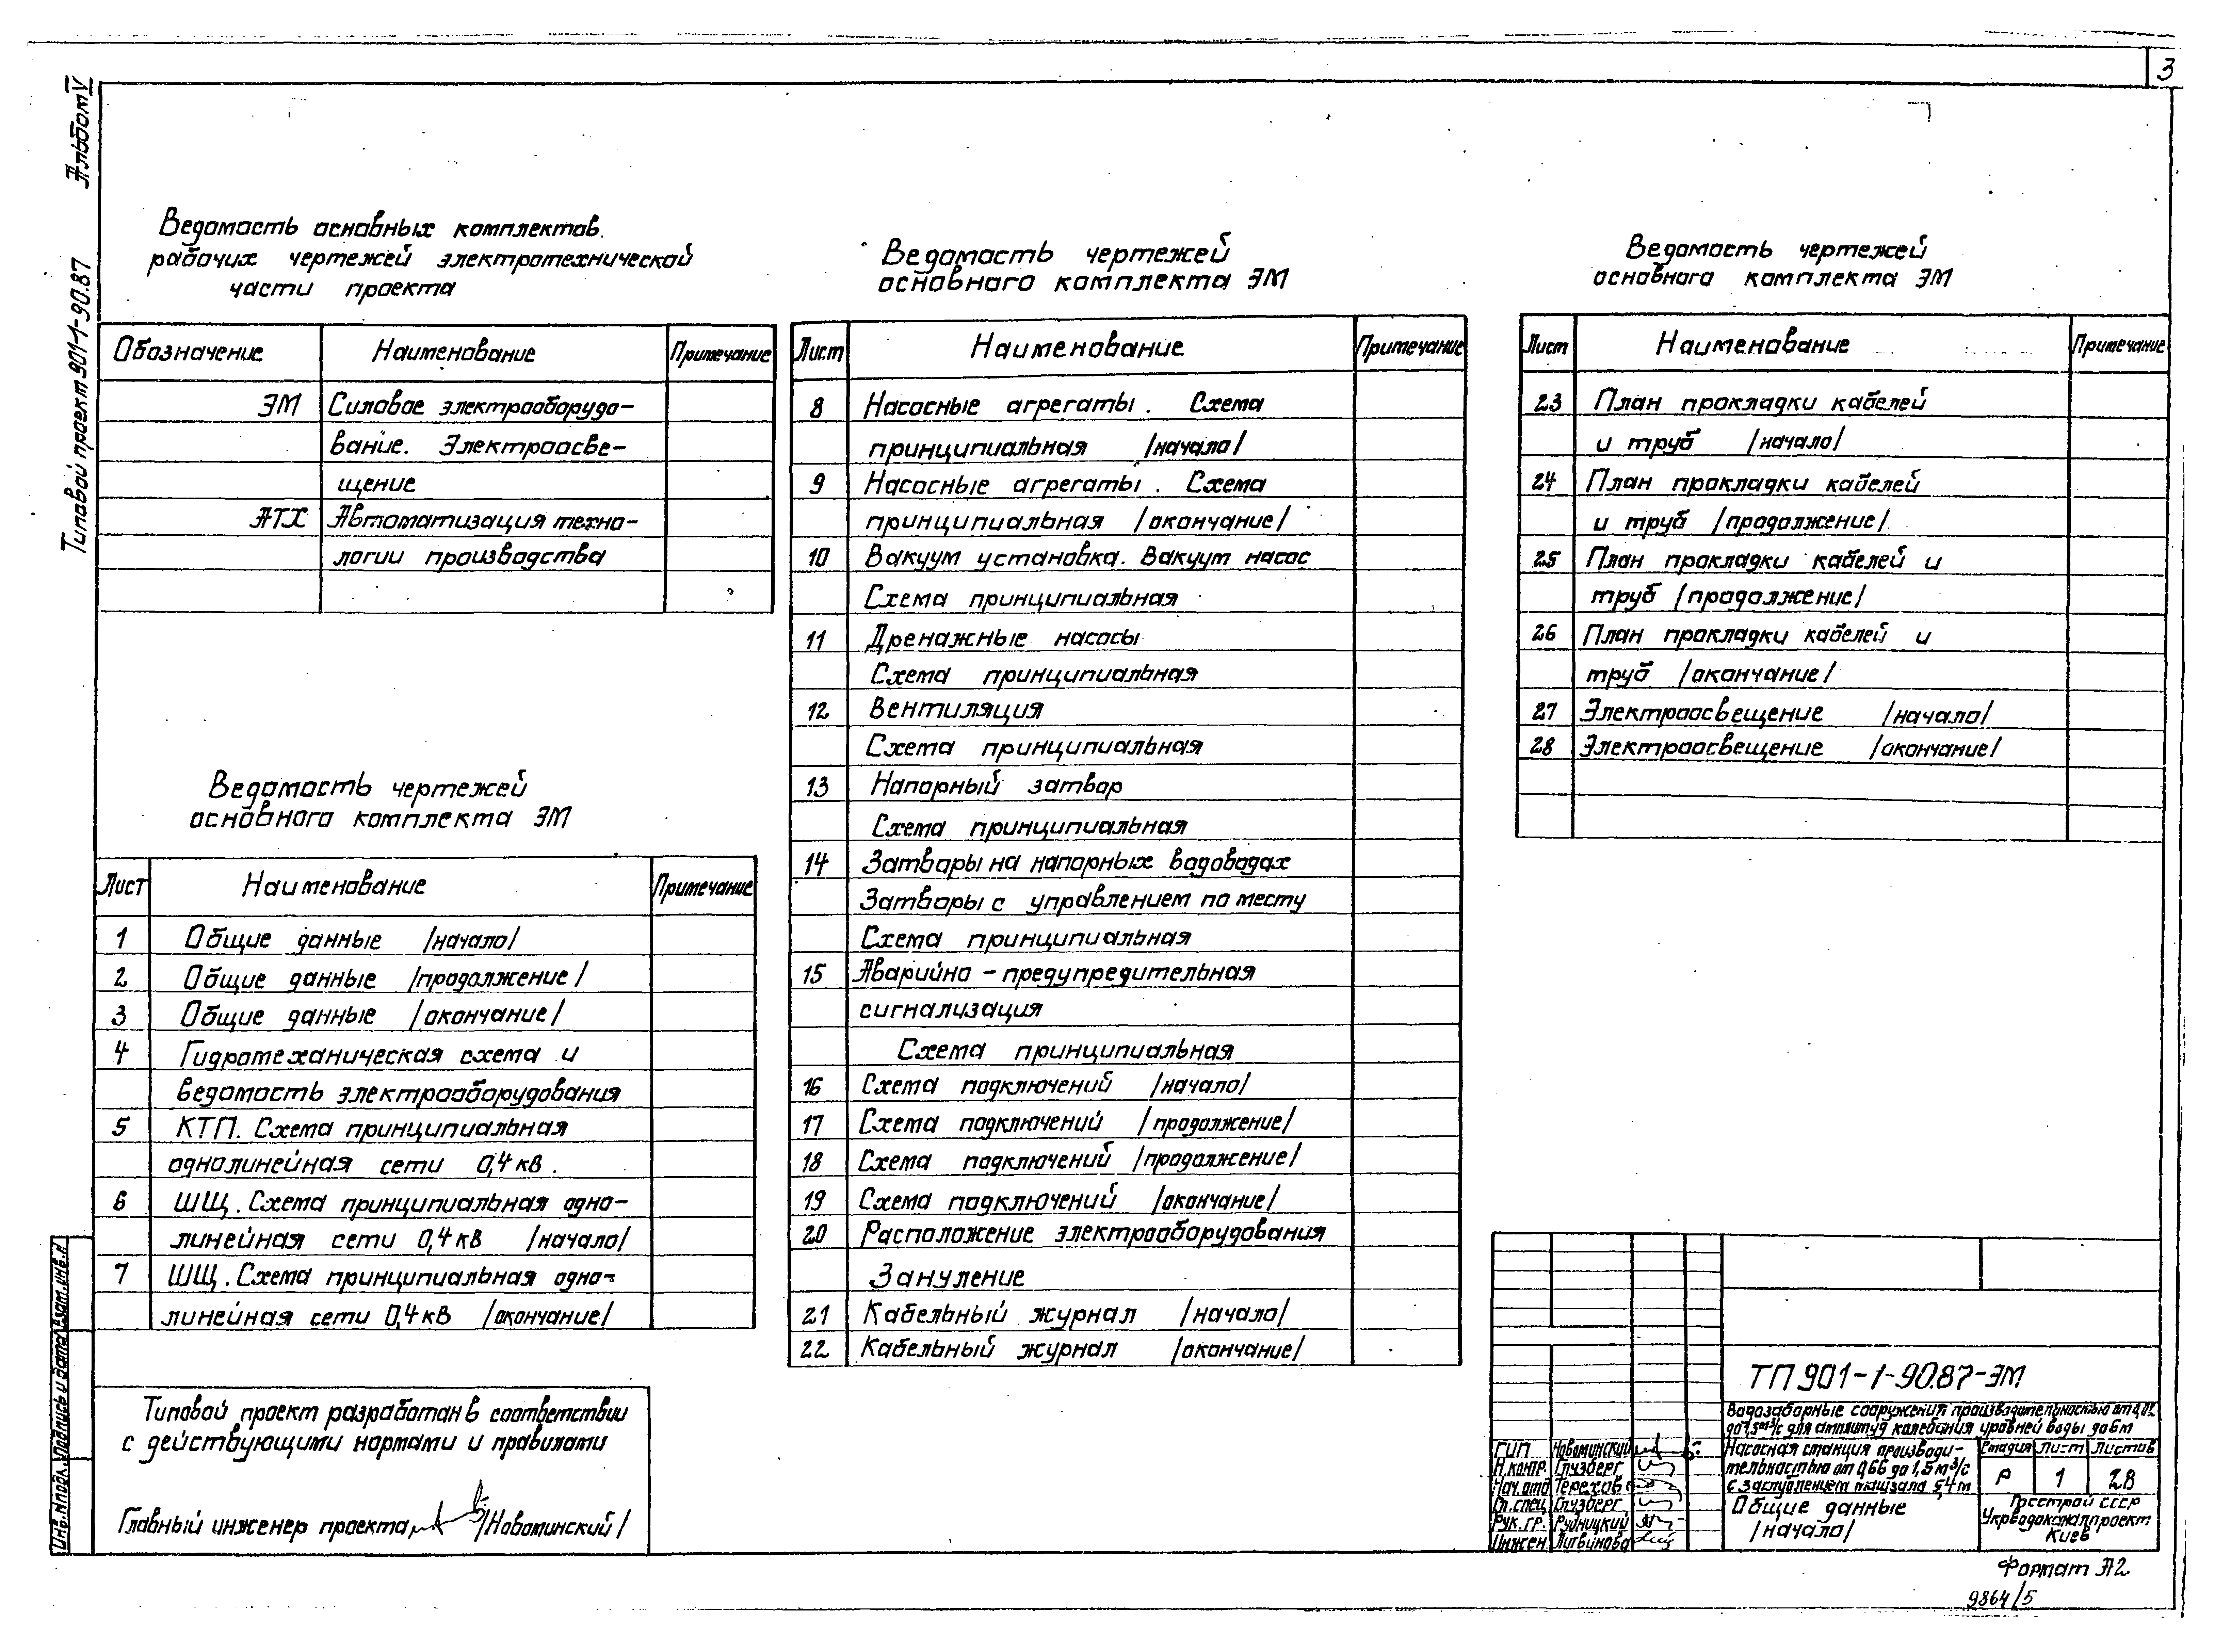 3
Типовой проект 901-1-90.87 Альбом V
Ведомость основных комплектов
рабочих чертежей электротехнической
части проекта
Обозначение Наименование Примечание
ЭМ Силовое электрооборудо-
вание. Электроосве-
щение
АТХ Автоматизация техно-
логии производства
Ведомость чертежей
основного комплекта ЭМ
Лист Наименование Примечание
1 Общие данные /начало/
2 Общие данные /продолжение/
3 Общие данные /окончание/
4 Гидротеханическая схема и
ведомость электрооборудования
5 КТП. Схема принципиальная
однолинейная сети 0,4 кв.
6 ШЩ. Схема принципиальная одно-
линейная сети 0,4 кв /начало/
7 ШЩ. Схема принципиальная одно-
линейная сети 0,4 кв /окончание/
Типовой проект разработан в соответствии
с действующими нормами и правилами
Главный инженер проекта /Новоминский/
Ведомость чертежей
основного комплекта ЭМ
Лист Наименование Примечание
8 Насосные агрегаты. Схема
принципиальная /начало/
9 Насосные агрегаты. Схема
принципиальная /окончание/
10 Вакуум установка. Вакуум насос
Схема принципиальная
11 Дренажные насосы
Схема принципиальная
12 Вентиляция
Схема принципиальная
13 Напорный затвор
Схема принципиальная
14 Затворы на напорных водоводах
Затворы с управлением по месту
Схема принципиальная
15 Аварийно-предупредительная
сигнализация
Схема принципиальная
16 Схема подключений /начало/
17 Схема подключений /продолжение/
18 Схема подключений /продолжение/
19 Схема подключений /окончание/
20 Расположение электрооборудования
Зануление
21 Кабельный журнал /начало/
22 Кабельный журнал /окончание/
Ведомость чертежей
основного комплекта ЭМ
Лист Наименование Примечание
23 План прокладки кабелей
и труб /начало/
24 План прокладки кабелей
и труб /продолжение/
25 План прокладки кабелей и
труб /продолжение/
26 План прокладки кабелей и
труб /окончание/
27 Электроосвещение /начало/
28 Электроосвещение /окончание/
ТП 901-1-90.87-ЭМ
Водозаборные сооружения производительностью от
для амплитуд колебания уровней воды до 6м
Насосная станция производи-
тельностью от 0,66 до 1,5 м³/с
с заглублением машзала 5,4 м
Стадия Лист Листов
Р 1 28
Общие данные
/начало/
Госстрой СССР
Укрводоканалпроект
Киев
ГИП Новоминский
Н.контр. Глузберг
Нач.отд Терехов
Гл.спец. Глузберг
Рук.гр. Рудницкий
Инжен. Литвинова
Инв.№подл. Подпись и дата Взам.инв.№
Формат А2
9864/5